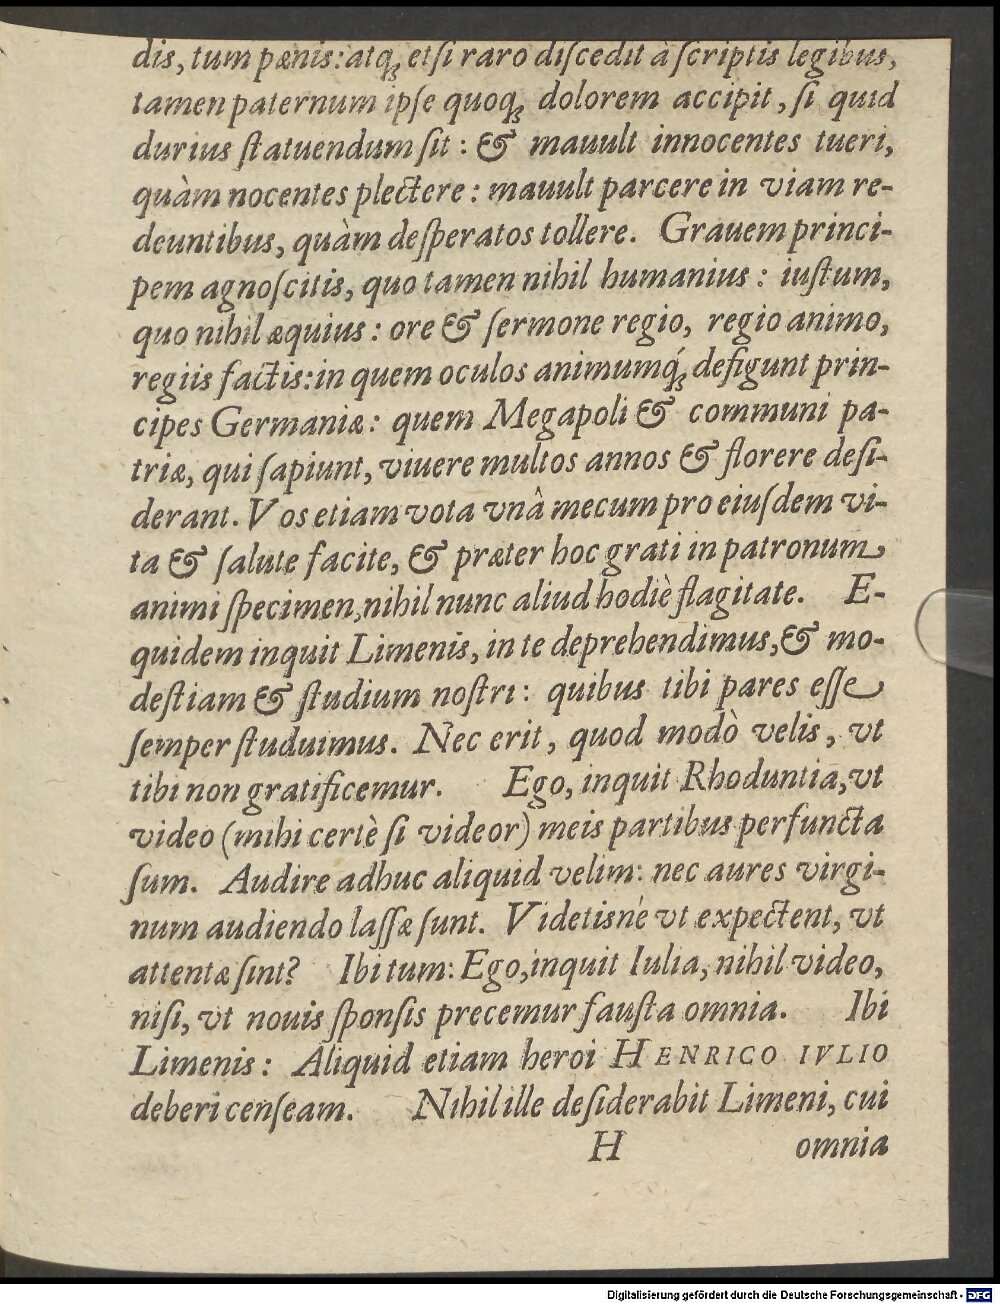 dis, tum pœnis: atq́ꝫ etsi raro discedit à scriptis legibus,
tamen paternum ipse quoqꝫ dolorem accipit, si quid
durius statuendum sit: & mauult innocentes tueri,
quàm nocentes plectere: mauult parcere in viam re-
deuntibus, quàm desperatos tollere. Grauem princi-
pem agnoscitis, quo tamen nihil humanius: iustum,
quo nihil æquius: ore & sermone regio, regio animo,
regiis factis: in quem oculos animumq́ꝫ defigunt prin-
cipes Germaniæ: quem Megapoli & communi pa-
triæ, qui sapiunt, viuere multos annos & florere desi-
derant. Vos etiam vota vnâ mecum pro eiusdem vi-
ta & salute facite, & præter hoc grati in patronum
animi specimen, nihil nunc aliud hodiè flagitate. E-
quidem inquit Limenis, in te deprehendimus, & mo-
destiam & studium nostri: quibus tibi pares esse
semper studuimus. Nec erit, quod modò velis, vt
tibi non gratificemur. Ego, inquit Rhoduntia, vt
video (mihi certè si videor) meis partibus perfuncta
sum. Audire adhuc aliquid velim: nec aures virgi-
num audiendo lassæ sunt. Videtisnè vt expectent, vt
attentæ sint? Ibi tum: Ego, inquit Iulia, nihil video,
nisi, vt nouis sponsis precemur fausta omnia. Ibi
Limenis: Aliquid etiam heroi HENRICO IVLIO
deberi censeam. Nihil ille desiderabit Limeni, cui
H omnia
Digitalisierung gefördert durch die Deutsche Forschungsgemeinschaft - DFG